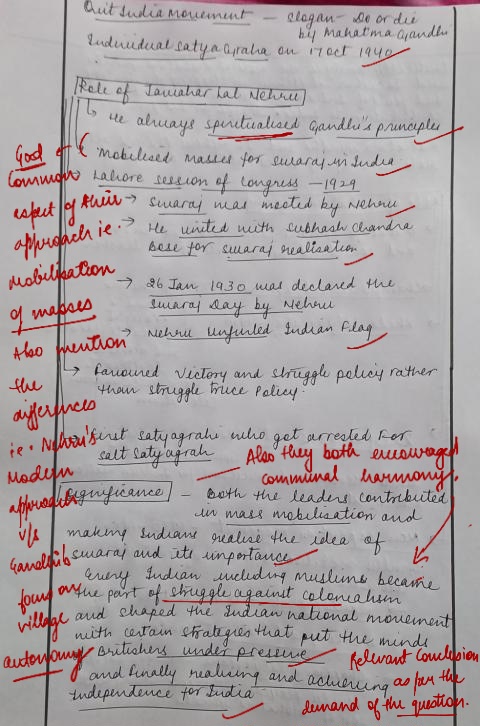 Quit India Movement - slogan - Do or die
by Mahatma Gandhi
Individual Satyagraha on 17 Oct 1940
Role of Jawahar Lal Nehru
He always spiritualised Gandhi's principles
Mobilised masses for swaraj in India
Lahore session of Congress - 1929
Swaraj was mooted by Nehru
He united with Subhash Chandra
Bose for swaraj realisation
26 Jan 1930 was declared the
Swaraj Day by Nehru
Nehru unfurled Indian Flag
favoured victory and struggle policy rather
than struggle truce Policy.
First satyagrahi who got arrested for
salt satyagrah
Significance - Both the leaders contributed
in mass mobilisation and
making Indians realise the idea of
swaraj and its importance
Every Indian including muslims became
the part of struggle against colonialism
and shaped the Indian national movement
with certain strategies that put the minds
Britishers under pressure
and finally realising and achieving
Independence for India
Good
Common
aspect of their
approach ie.
mobilisation
of masses
Also mention
the
differences
i.e. Nehru's
Modern
approach
v/s
Gandhi's
focus on
village
autonomy
Also they both encouraged
communal harmony.
Relevant Conclusion
as per the
demand of the question.